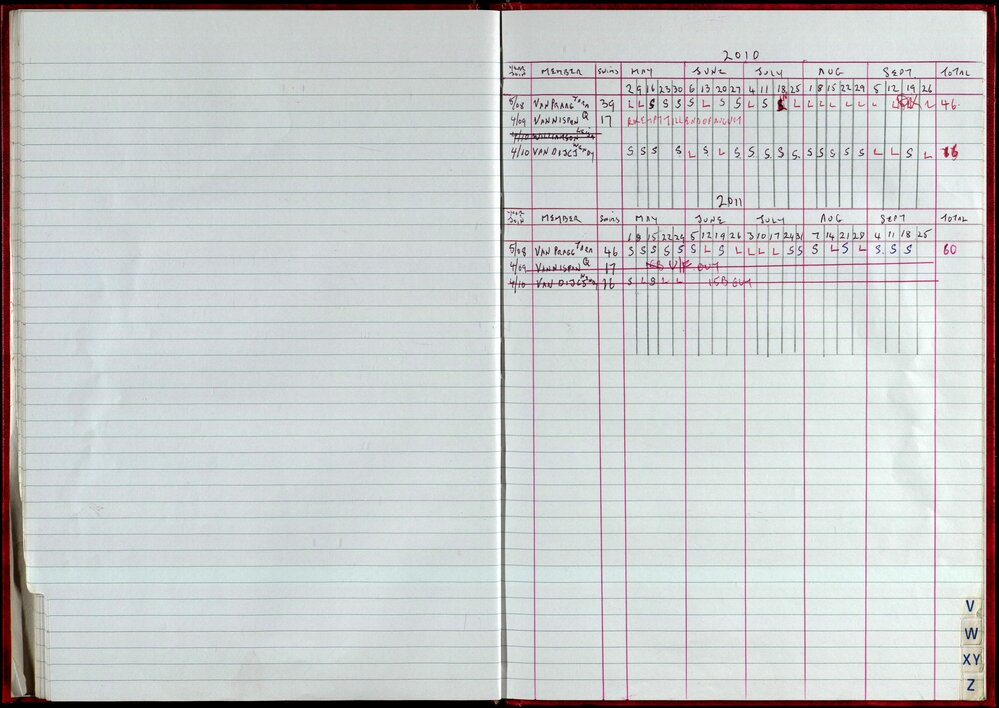 2010
YEAR JOIN MEMBER SWIMS MAY JUNE JULY AUG SEPT TOTAL
2 9 16 23 30 6 13 20 27 4 11 18 25 1 8 15 22 29 5 12 19 26
5/08 VAN PRAAG 39 L L S S S S L S S L S L L L L L L L L 46
4/09 VAN NISPEN Q 17 EXEMPT TILL END OF AUGUST
4/10 VAN DIJCJ S S S S L S L S S S S S S S S S S L L S L 16
2011
YEAR JOIN MEMBER SWIMS MAY JUNE JULY AUG SEPT TOTAL
1 8 15 22 29 5 12 19 26 3 10 17 24 31 7 14 21 28 4 11 18 25
5/08 VAN PRAAG 46 S S S S S S L S L L L L S S S L S L S S S 60
4/09 VAN NISPEN Q 17 OUT
4/10 VAN DIJCJ 16 S L S L L ISB OUT
V
W
XY
Z